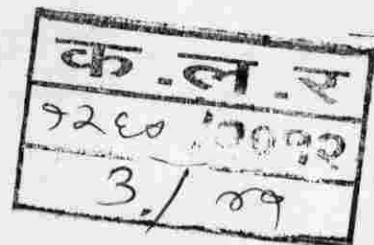 क.ल.र
१२६० /२०१२
३ / ४१